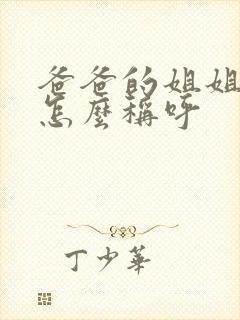 爸爸的姐姐
怎麼稱呼
丁少華